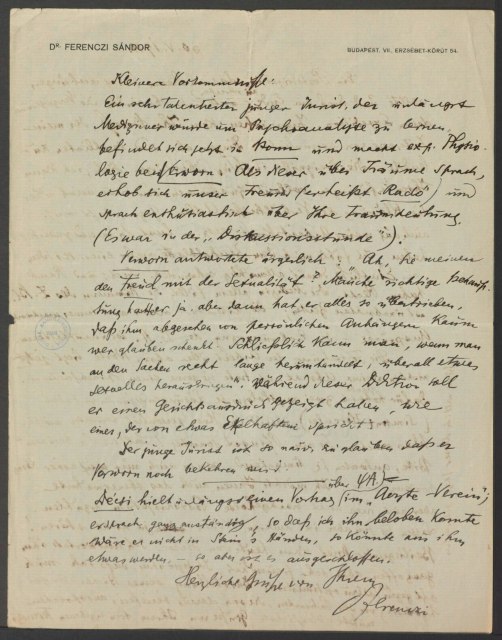 DR. FERENCZI SÁNDOR
BUDAPEST, VII. ERZSÉBET-KÖRÚT 54.
Kleinere Vorkommnisse:
Ein sehr talentierter junger Jurist, der unlängst
Mediziner wurde um Psychoanalyse zu lernen,
befindet sich jetzt in Bonn und macht exp. Physio-
logie bei Verworn. Als dieser über Träume sprach,
erhob sich unser Freund (er heißt Radó) und
sprach enthusiastisch über Ihre Traumdeutung.
(Es war in der „Diskussionsstunde").
Verworn antwortete ärgerlich: Ah, Sie meinen
den Freud mit der Sexualität? Manche richtige Behaup-
tung hat er ja, aber dann hat er alles so übertrieben,
daß ihm abgesehen von persönlichen Anhängern kaum
wer glauben schenkt. Schließlich kann man, wenn man
an den Sachen recht lange herum, überall etwas
sexuelles herausbringen". Während dieser Diktion soll
er einen Gesichtsausdruck gezeigt haben, wie
einer, der von etwas Ekelhaftem spricht!
Der junge Jurist ist so naiv, zu glauben, daß er
Verworn noch bekehren wird.
über ΨA
Décsi hielt unlängst einen Vortrag (im „Aerzte-Verein");
er sprach ganz anständig, so daß ich ihn beloben konnte
wäre er nicht in Steins Händen, so könnte aus ihm
etwas werden, – so aber ist es ausgeschlossen.
Herzliche Grüße von Ihrem
Ferenczi